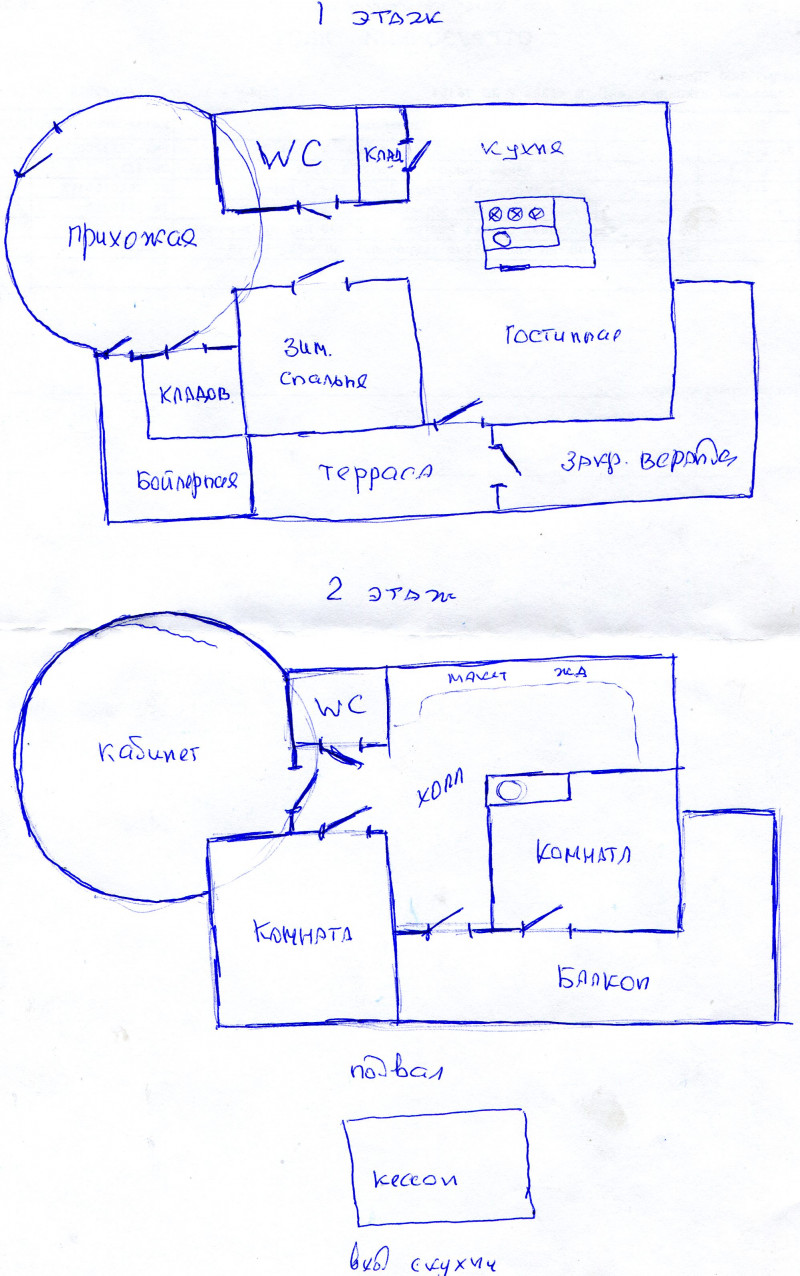 1 этаж
WC
клад
кухня
прихожая
гостинная
зим.
спальня
кладов.
Бойлерная
терраса
закр. веранда
2 этаж
макет жд
WC
кабинет
холл
комната
комната
Балкон
подвал
кессон
вход с кухни